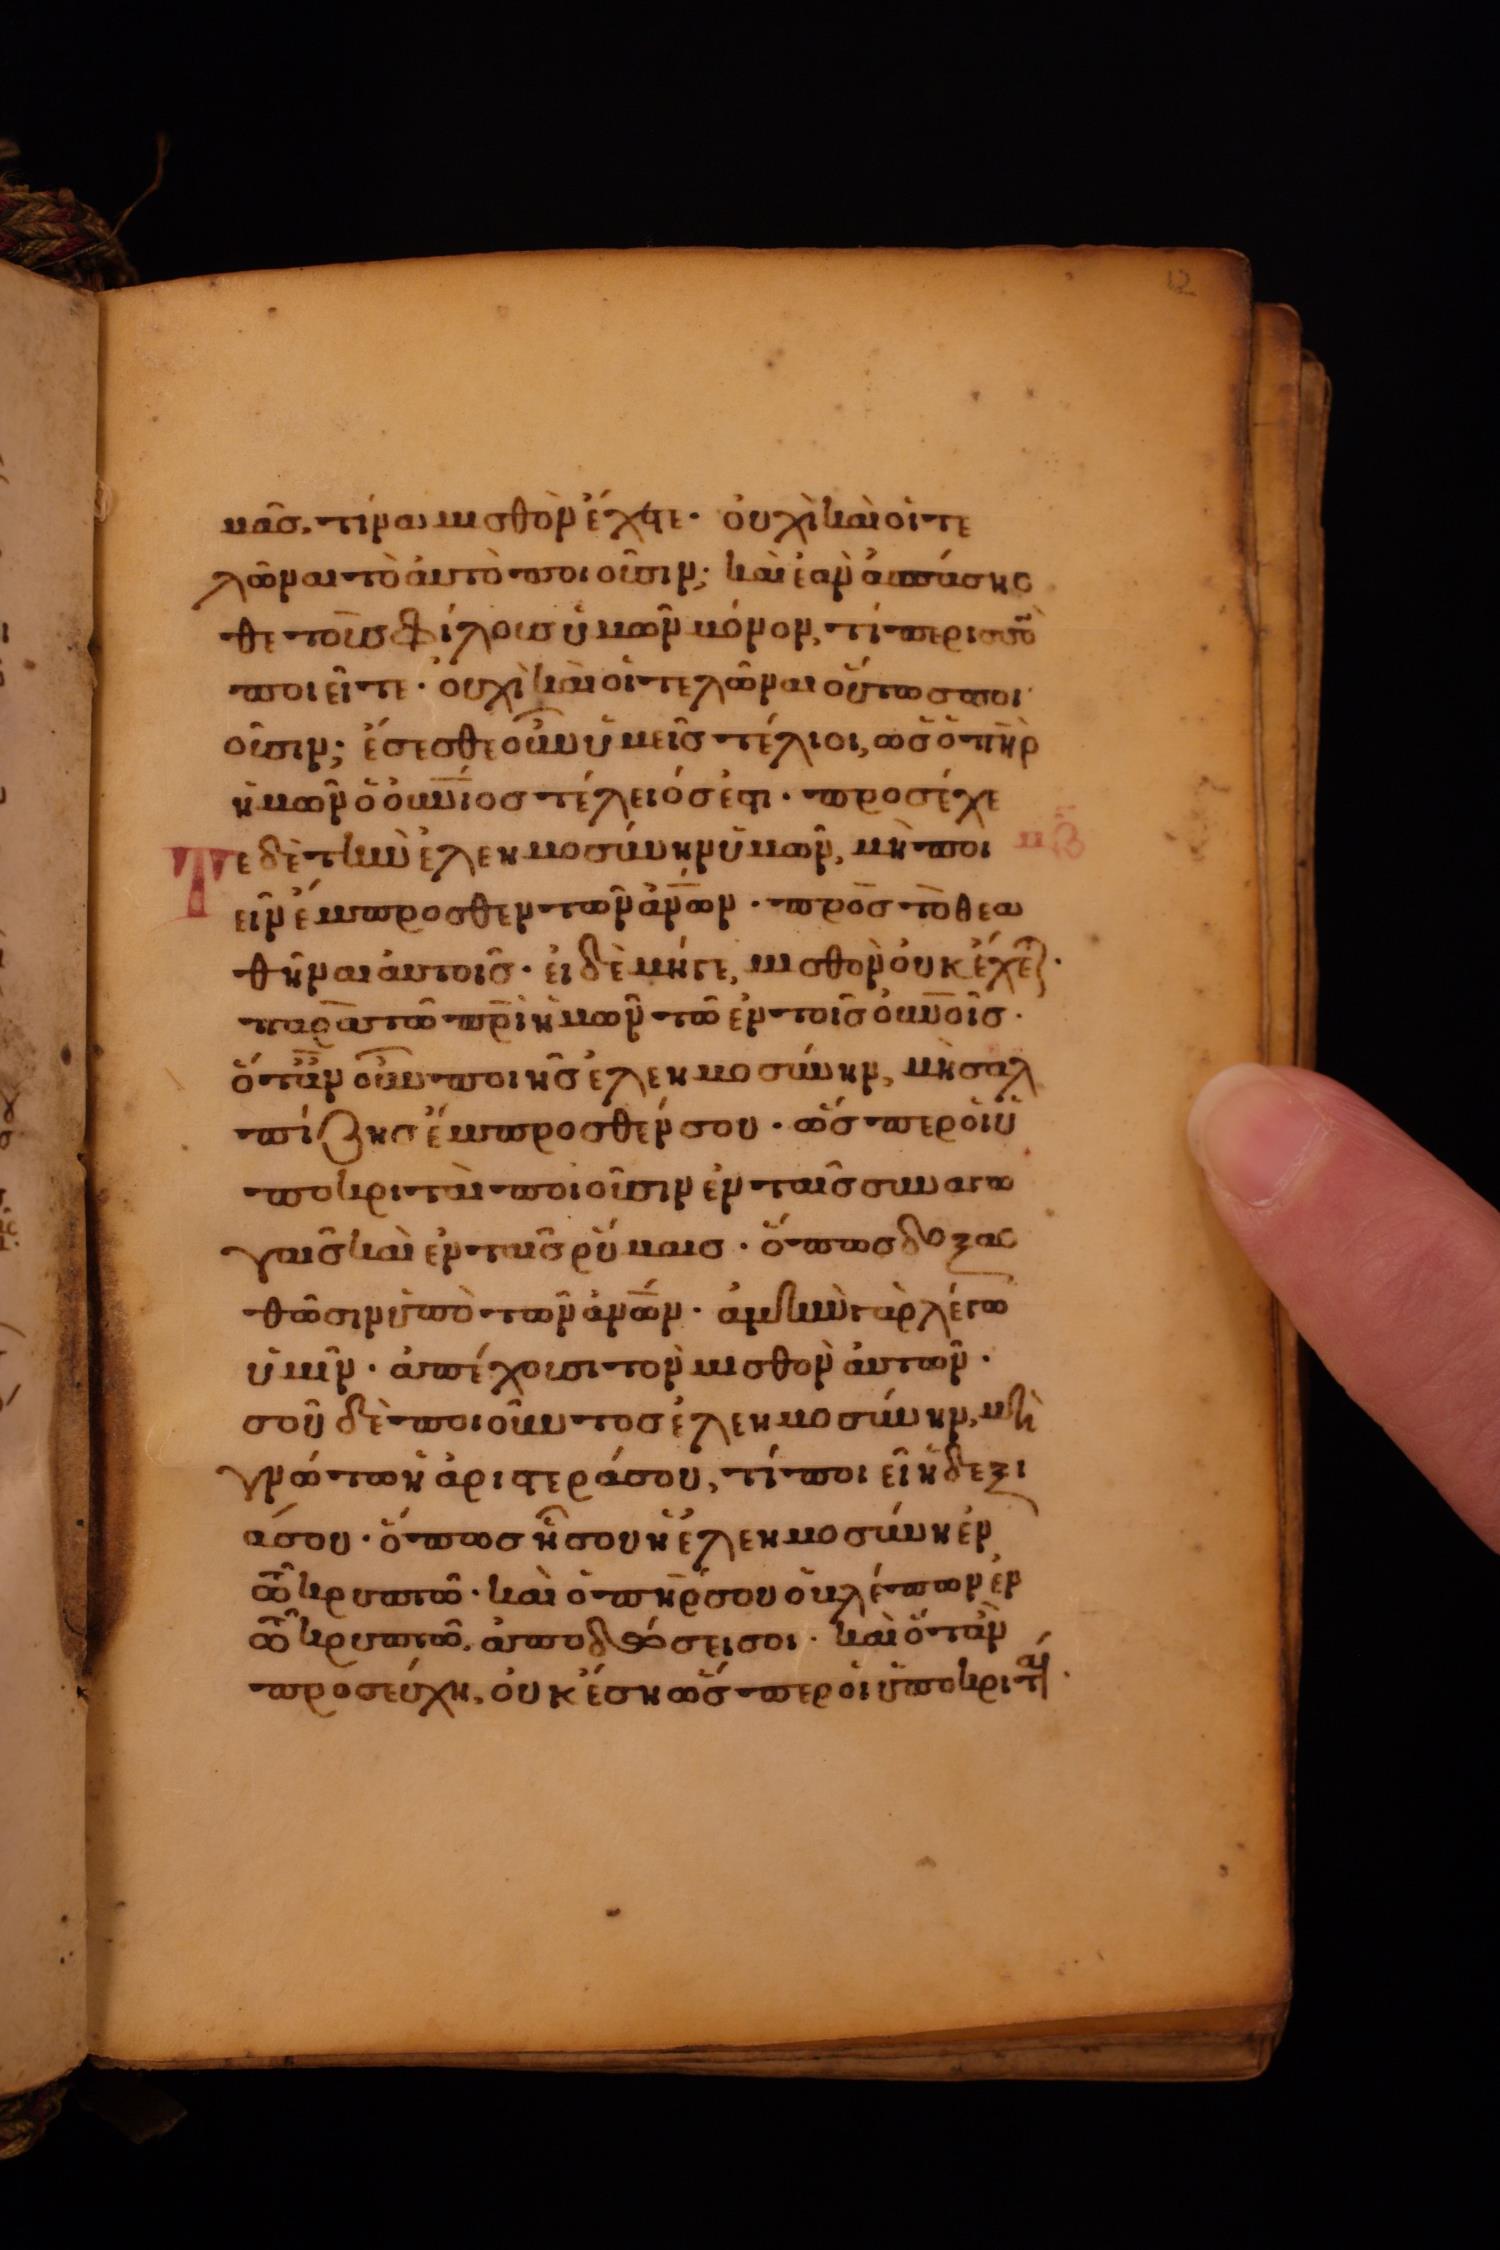 12
μᾶς, τίνα μισθὸν ἔχετε· οὐχὶ καὶ οἱ τε
λῶναι τὸ ἀυτὸ ποιοῦσιν; καὶ ἐὰν ἀσπάσησ
θε τοῦς φίλους ὑμῶν μόνον, τί περισσὸν
ποιεῖτε· οὐχὶ καὶ οἱ τελῶναι οὕτως ποι
οῦσιν; ἔσεσθε οὖν ὑμεῖς τέλιοι, ὡς ὁ π̅η̅ρ
ἡμῶν ὁ ο̅υ̅ν̅ιος τέλειός ἐστι· προσέχε
Τε δὲ τὴν ἐλεημοσύνην ὑμῶν, μὴ ποι
εῖν ἔμπροσθεν τῶν ἀ̅ν̅ω̅ν· πρὸς τὸ θεα
θῆναι ἀυτοῖς· ἐι δὲ μήγε, μισθὸν οὐκ ἔχετε·
παρὰ τῶ π̅ρ̅ὶ ἡμῶν τῶ ἐν τοῖς ο̅υ̅ν̅οῖς·
ὅταν οὖν ποιῆς ἐλεημοσύνην, μὴ σαλ
πίζης ἔμπροσθέν σου· ὥσπερ οἱ ὑ
ποκριταὶ ποιοῦσιν ἐν ταῖς συναγω
γαῖς καὶ ἐν ταῖς ρύμαις· ὅπως δοξασ
θῶσιν ὑπὸ τῶν ἀ̅ν̅ω̅ν· ἀμὴν γὰρ λέγω
ὑμῖν· ἀπέχουσι τὸν μισθὸν ἀυτῶν·
σοῦ δὲ ποιοῦντος ἐλεημοσύνην, μὴ
γνώτω ἡ ἀριστερά σου, τί ποιεῖ ἡ δεξι
ά σου· ὅπως ἦ σου ἡ ἐλεημοσύνη ἐν
τῶ κρυπτῶ· καὶ ὁ π̅η̅ρ σου ὁ βλέπων ἐν
τῶ κρυπτῶ, ἀποδώσει σοι· καὶ ὅταν
προσεύχη, οὐκ ἔση ὥσπερ οἱ ὑποκριταὶ·